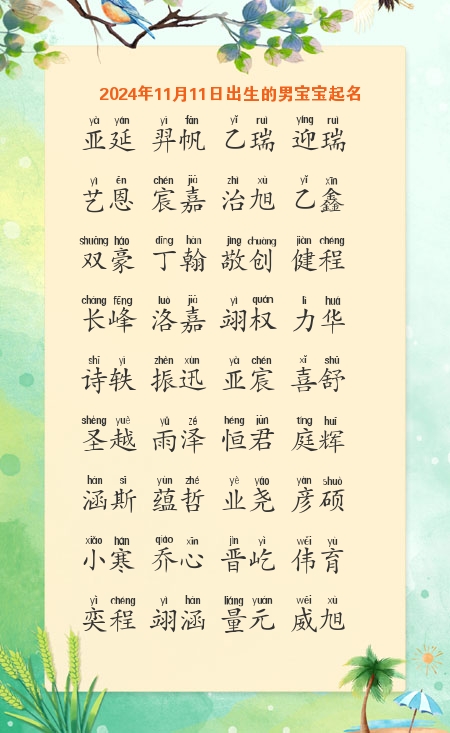 2024年11月11日出生的男宝宝起名
yà yán yì fān yǐ ruì yíng ruì
亚延 羿帆 乙瑞 迎瑞
yì ēn chén jiā zhì xù yǐ xīn
艺恩 宸嘉 治旭 乙鑫
shuāng háo dīng hàn jìng chuàng jiàn chéng
双豪 丁翰 敬创 健程
cháng fēng luò jiā yì quán lì huá
长峰 洛嘉 翊权 力华
shī yì zhèn xùn yà chén xǐ shū
诗轶 振迅 亚宸 喜舒
shèng yuè yǔ zé héng jūn tíng huī
圣越 雨泽 恒君 庭辉
hán sī yùn zhé yè yáo yàn shuò
涵斯 蕴哲 业尧 彦硕
xiǎo hán qiáo xīn jìn yì wěi yù
小寒 乔心 晋屹 伟育
yì chéng yì hán liàng yuán wēi xù
奕程 翊涵 量元 威旭